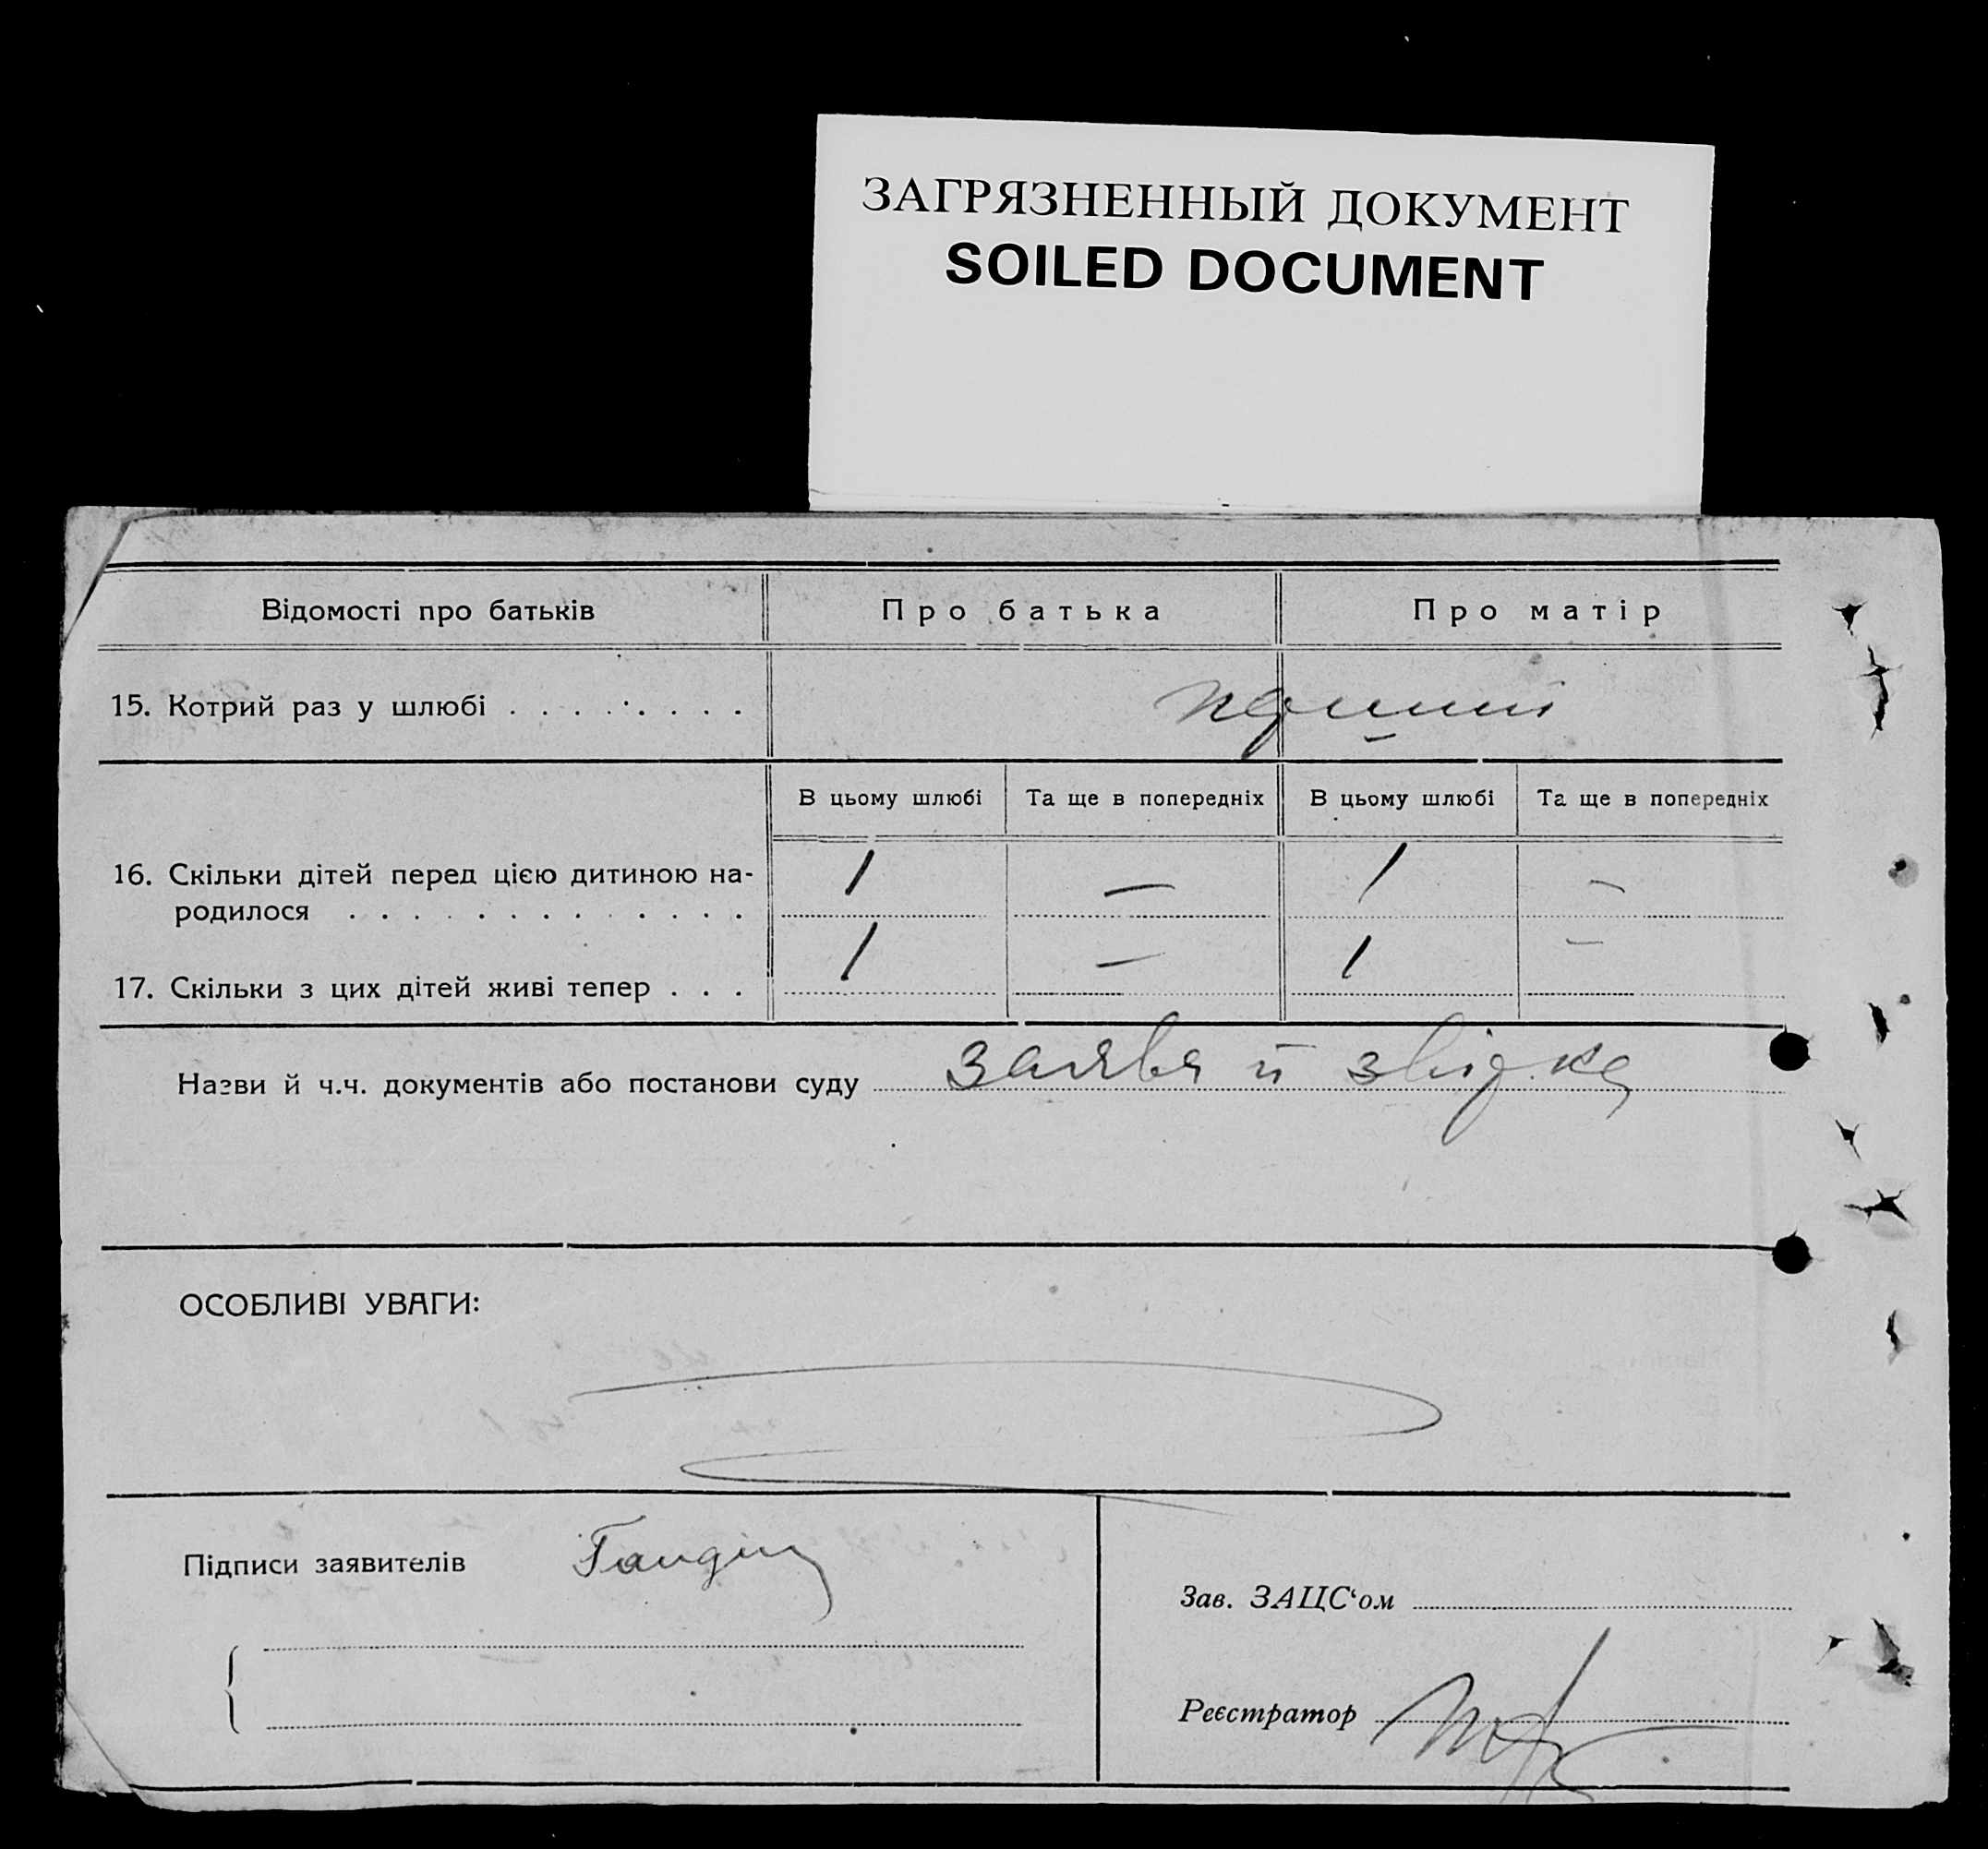 ЗАГРЯЗНЕННЫЙ ДОКУМЕНТ
SOILED DOCUMENT
Відомості про батьків Про батька Про матір
15. Котрий раз у шлюбі . . . . . . . . .
В цьому шлюбі Та ще в попередніх В цьому шлюбі Та ще в попередніх
16. Скільки дітей перед цією дитиною на-
родилося . . . . . . . . . . . . . 1 — 1 —
17. Скільки з цих дітей живі тепер . . . 1 — 1 —
Назви й ч.ч. документів або постанови суду заява й звідка
ОСОБЛИВІ УВАГИ:
Підписи заявителів
Зав. ЗАЦС‘ом
Реєстратор